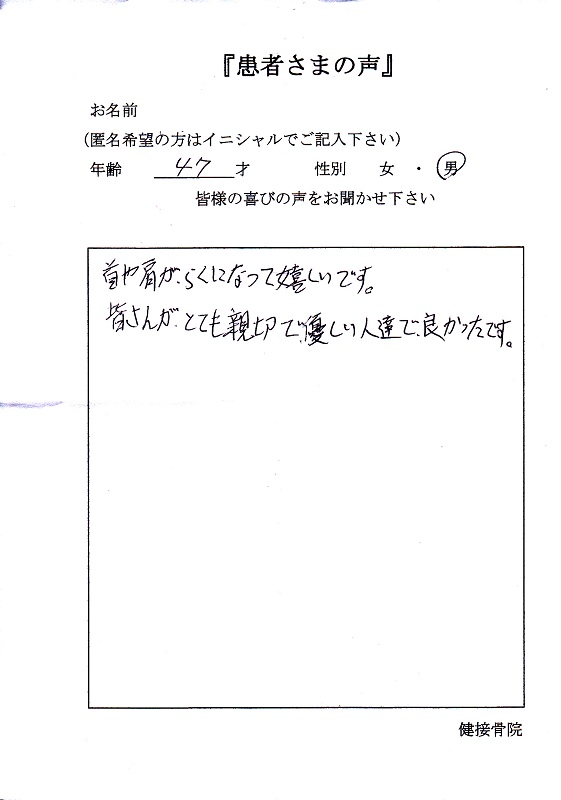 『患者さまの声』
お名前
(匿名希望の方はイニシャルでご記入下さい)
年齢 47 才 性別 女 ・ 男
皆様の喜びの声をお聞かせ下さい
首や肩がらくになって嬉しいです。
皆さんがとても親切で優しい人達で良かったです。
健接骨院